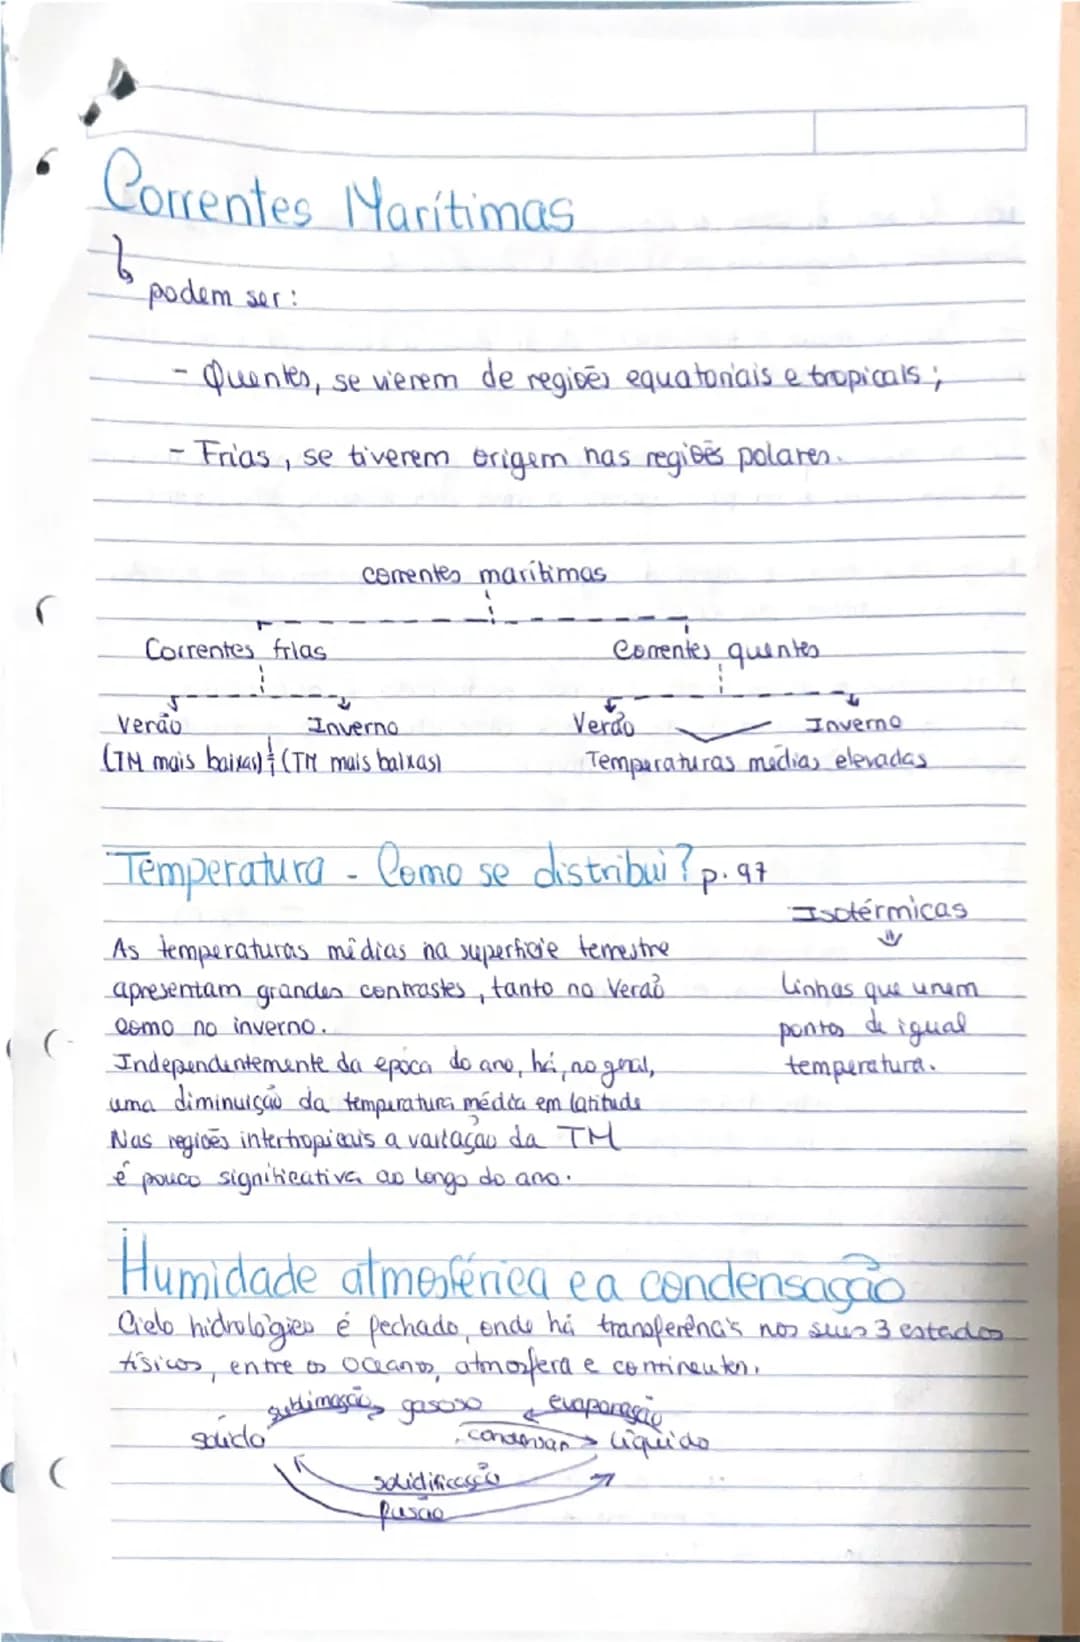 Correntes Marítimas
podem ser:
- Quentes, se vierem de regiões equatoriais e tropicais;
- Frias, se tiverem origem nas regiões polares.
correntes marítimas
Correntes frias
Correntes quentes
Verão Inverno
Verão Inverno
(TM mais baixas) (TM mais baixas)
Temperaturas médias elevadas
Temperatura - Como se distribui? p. 97
Isotérmicas
As temperaturas médias na superfície terrestre
apresentam grandes contrastes, tanto no Verão
como no inverno.
Linhas que unem
pontos de igual
temperatura.
Independentemente da época do ano, há, no geral,
uma diminuição da temperatura média em latitude
Nas regiões intertropicais a variação da TM
é pouco significativa ao longo do ano.
Humidade atmosférica e a condensação
Ciclo hidrológico é fechado, onde há transferências nos seus 3 estados
físicos, entre os oceanos, atmosfera e continentes.
sublimação gasoso evaporação
sólido condensar líquido
solidificação
fusão